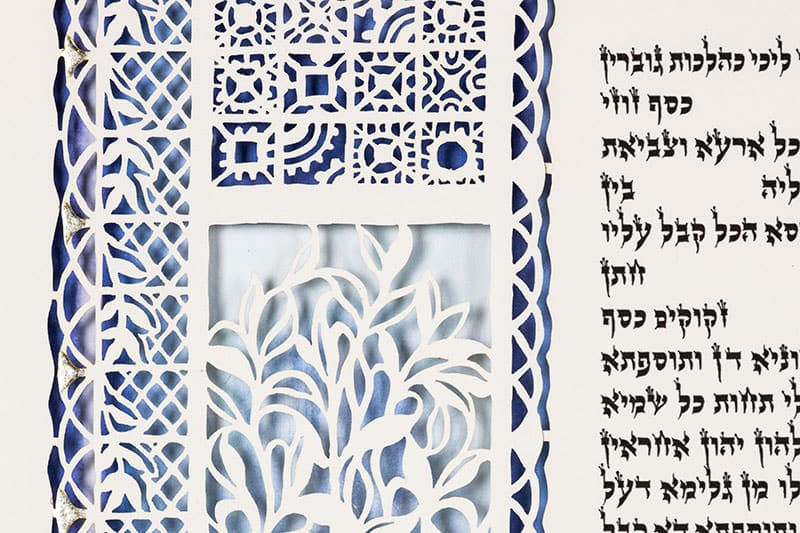 ליכי כהלכות גוברין
כסף זוזי
כל ארעא וצביאת
ליה בין
הכל קבל עליו
חתן
זקוקים כסף
דין ותוספתא
תחות כל שמיא
יהון אחראין
מן גלימא דעל